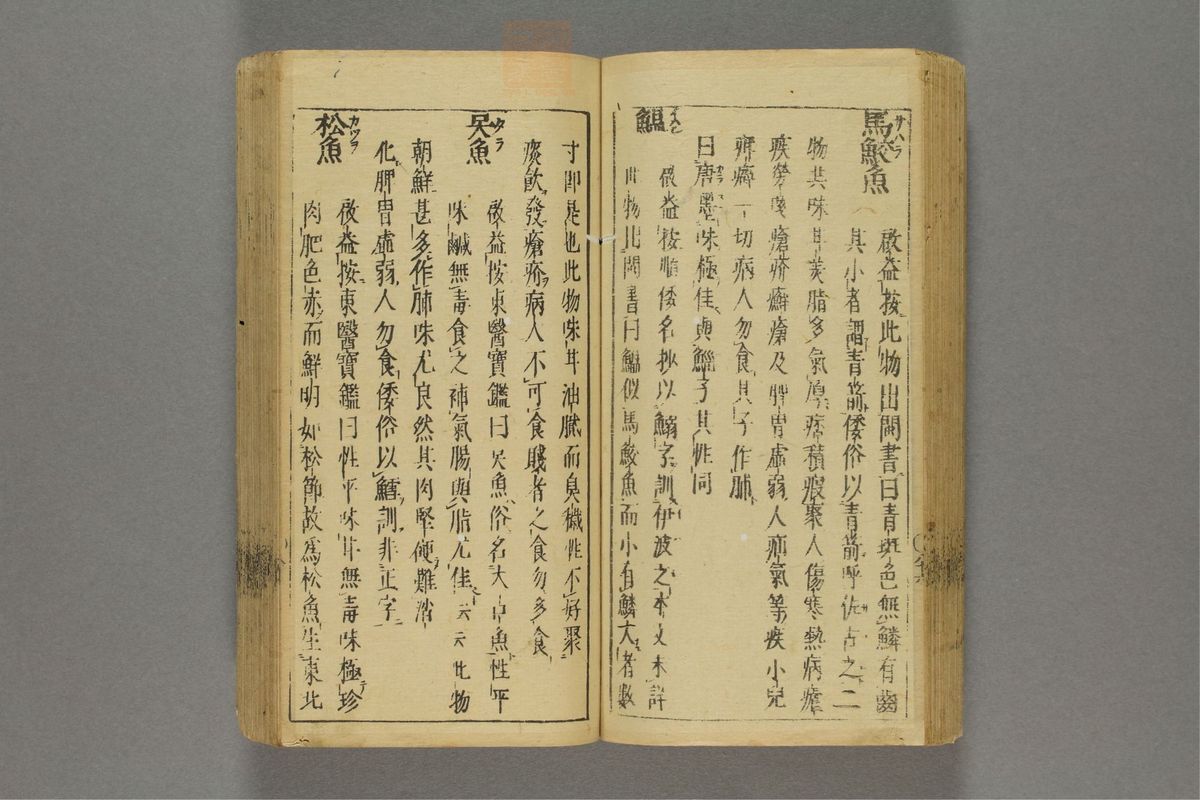 馬鮫魚 サハラ
啟益按此物出閩書曰青斑色無鱗有齒
其小者謂青箭倭俗以青箭呼佐古之二
物其味甘美脂多氣厚痞積瘕聚人傷寒熱病瘧
疾勞嗄瘡疥癬瘡及脾胃虛弱人疝氣等疾小兒
癖一切病人勿食其子作脯
曰唐墨味極佳與鯔子其性同
鰛
啟益按順倭名抄以鰯字訓伊波之本文未詳
此物出閩書曰鰛似馬鮫魚而小有鱗大者數
寸即是也此物味甘油膩而臭穢性不好聚
痰飲發瘡疥病人不可食賤者之食勿多食
㕦魚 タラ
啟益按東醫寶鑑曰㕦魚俗名大口魚性平
味鹹無毒食之補氣腸與脂尤佳云云此物
朝鮮甚多作脯味尤良然其肉堅硬難消
化脾胃虛弱人勿食倭俗以鱈訓非正字
松魚 カツヲ
啟益按東醫寶鑑曰性平味甘無毒味極珍
肉肥色赤而鮮明如松節故為松魚生東北